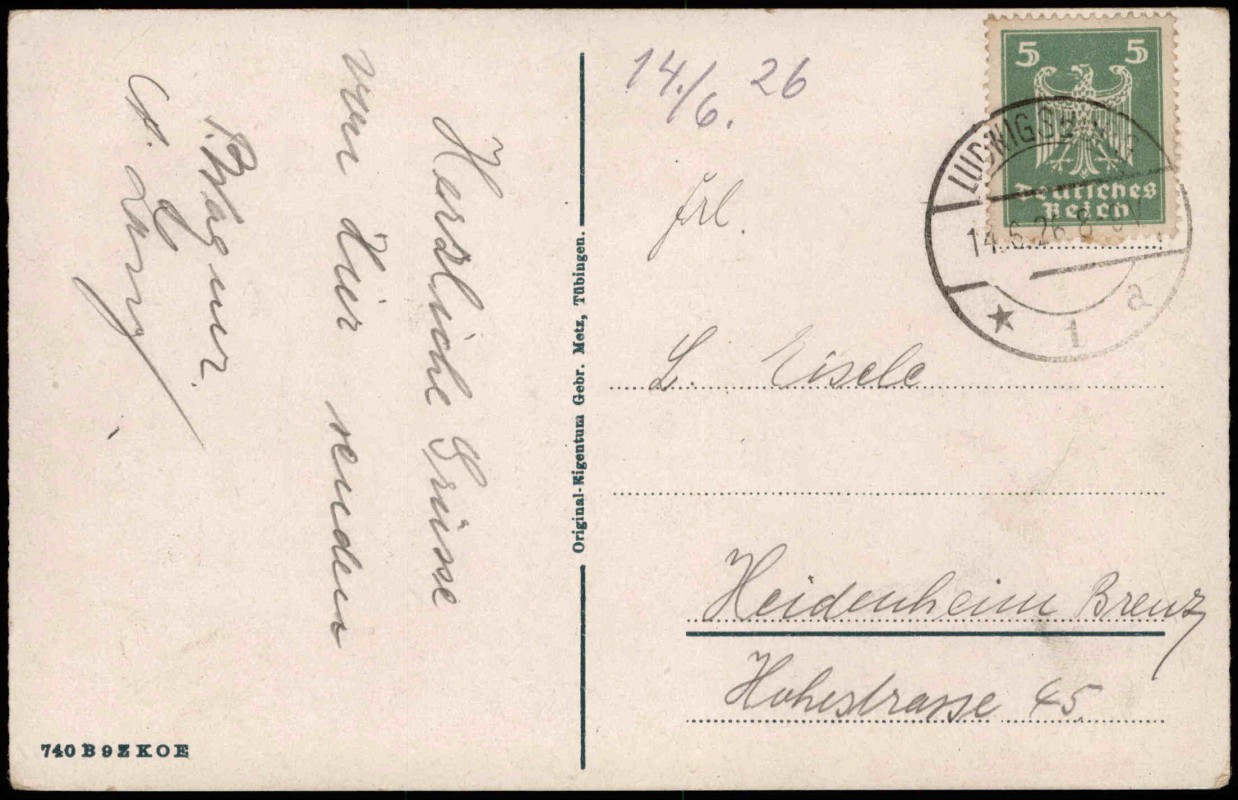 Herzliche Grüsse
von hier senden
P. Wagner.
A. Lang
Original-Eigentum Gebr. Metz, Tübingen.
14./6. 26
5 5
Deutsches
Reich
LUDWIGSBURG
14.6.26.8
1 a
Frl.
L. Eisele
Heidenheim Brenz
Hohestrasse 45
740 B 9 Z K O E